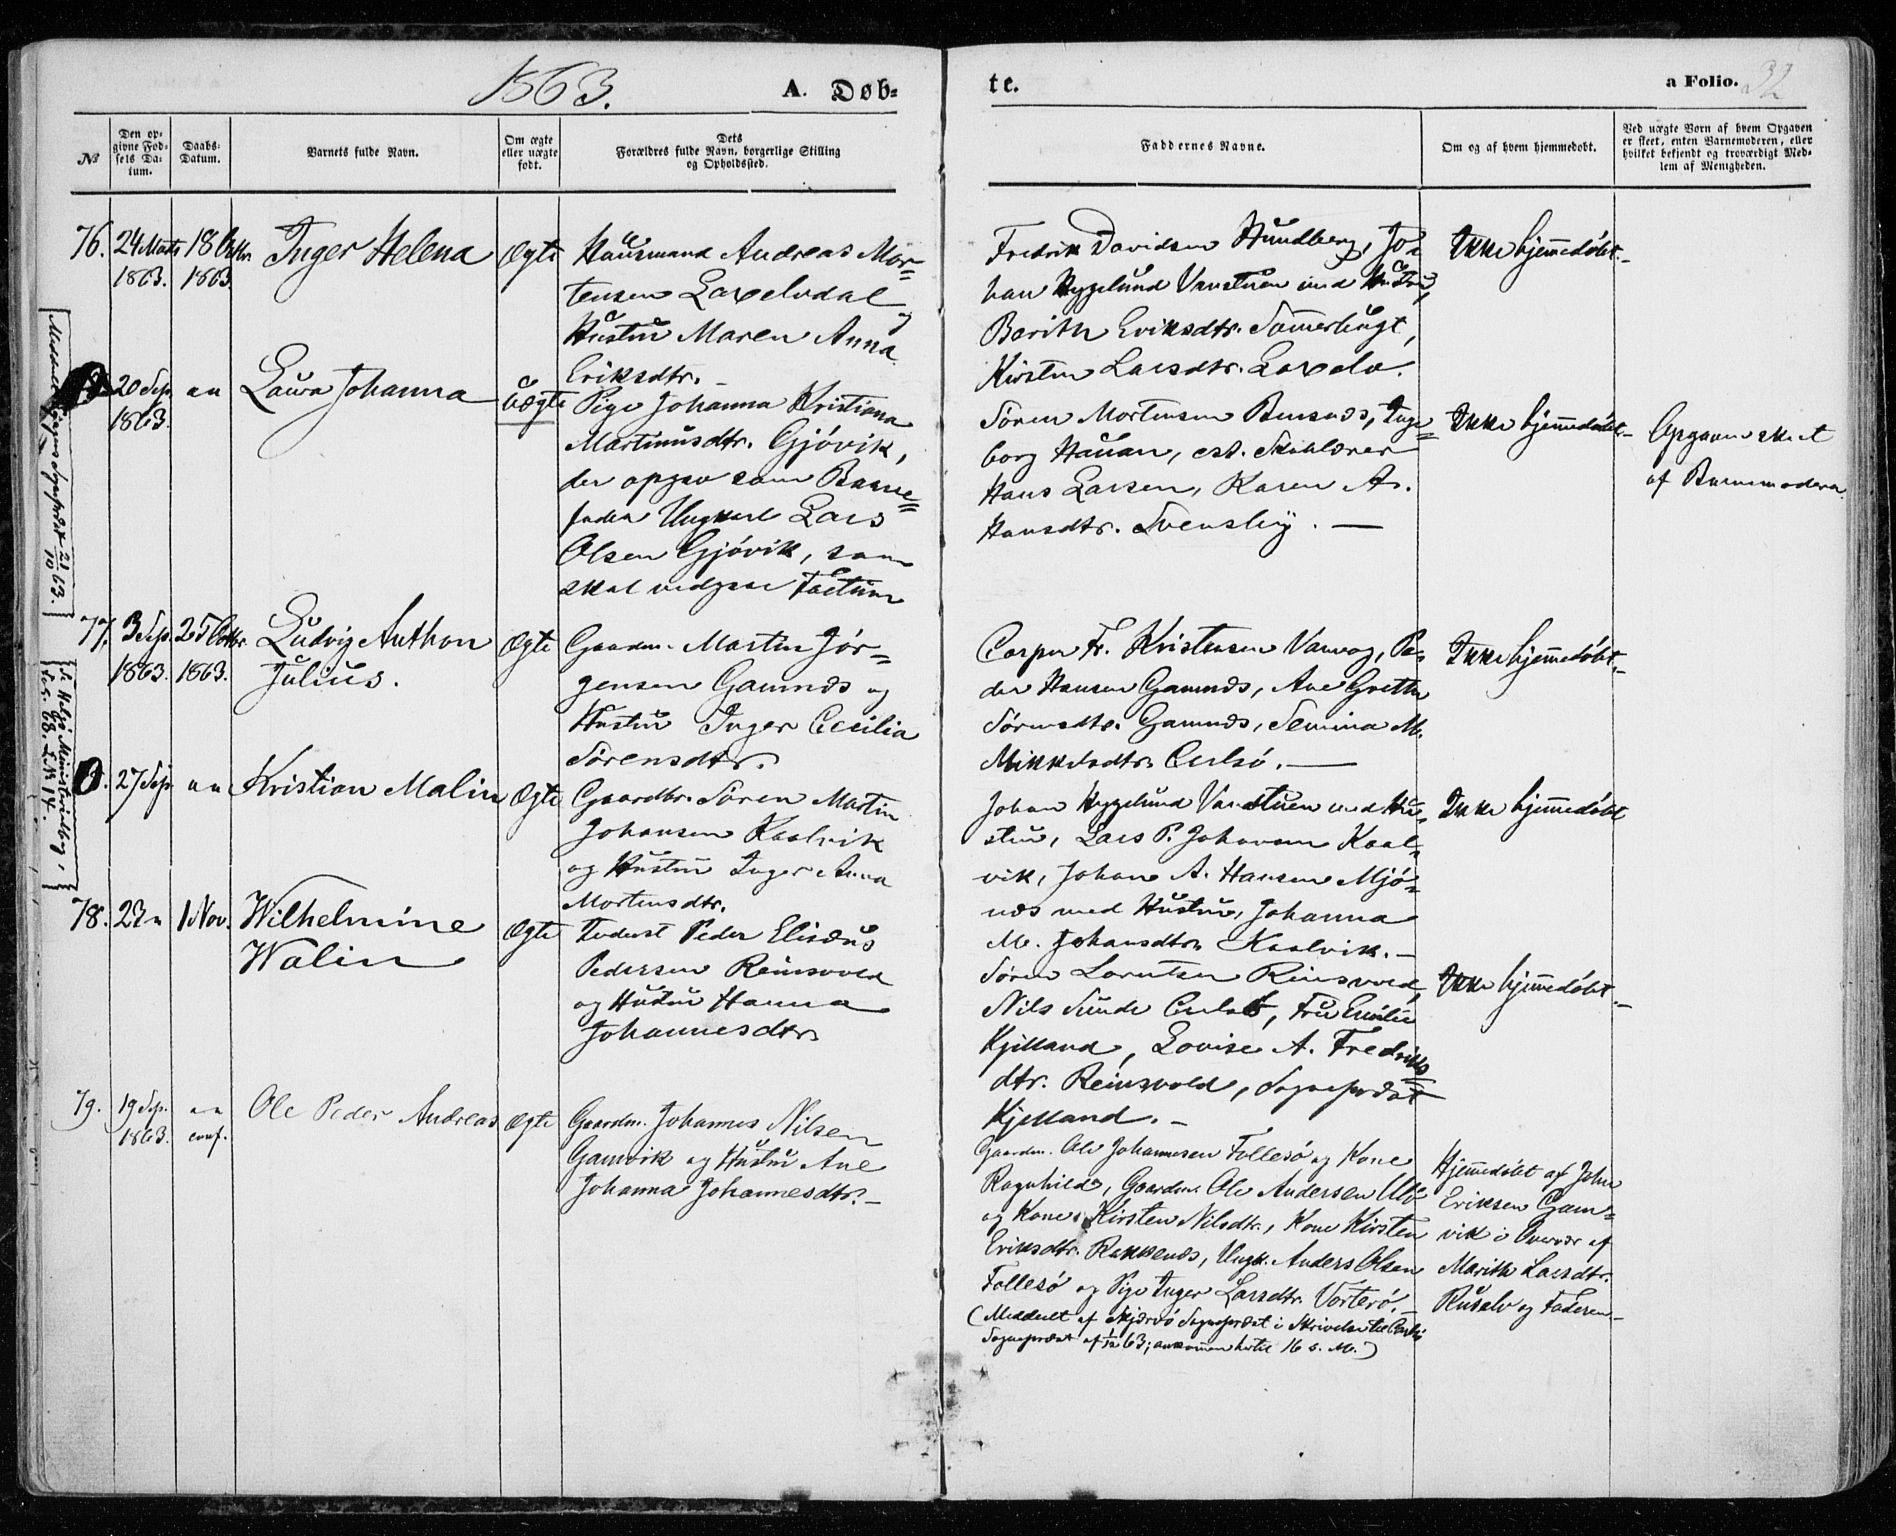 1863.
A. Døb-
te.
a Folio. 32
№
Den op-
givne Fød-
sels Da-
tum.
Daabs-
Datum.
Barnets fulde Navn.
Om ægte
eller uægte
født.
Dets
Forældres fulde Navn, borgerlige Stilling
og Opholdssted.
Faddernes Navne.
Om og af hvem hjemmedøbt.
Ved uægte Børn af hvem Opgaven
er skeet, enten Barnemoderen, eller
hvilket bekjendt og troværdigt Med-
lem af Menigheden.
76.
24 Marts
1863.
18 Octbr.
1863.
Inger Helena
Ægte
Huusmand Andreas Mor-
tensen Laxelvdal og
Hustru Maren Anna
Eriksdtr.
Fredrik Davidsen Hundberg, Jo-
han Hygelund Vanstuen med Hustru,
Berith Eriksdtr. Sommerbugt,
Kirsten Larsdtr. Laxelv.
Ikke hjemmedøbt
20 Sep.
1863.
Laura Johanna
Uægte
Pige Johanna Kristiana
Martinusdtr. Gjøvik,
der opgav som Barne-
fader Ungkarl Lars
Olsen Gjøvik, som
skal vedgaae Factum
Søren Mortensen Bensnæs, Inge-
borg Hauan, est. Skolelærer
Hans Larsen, Karen A.
Hansdtr. Svensby.
Ikke hjemmedøbt
Opgaven skeet
af Barnemoderen
21/10 63.
77.
3 Sep.
1863.
25 Octbr.
1863.
Ludvig Anthon
Julius.
Ægte
Gaardm. Martin Jør-
gensen Gamnæs og
Hustru Inger Cecilia
Sørensdtr.
Casper Fr. Kristensen Vanvag, Pe-
der Hansen Gamnæs, Ane Grethe
Sørensdtr. Gamnæs, Semina M.
Mikkelsdtr. Carlsø.
Ikke hjemmedøbt
27 Sep.
Kristian Malin
Ægte
Gaardbr. Søren Martin
Johansen Kaalvik
og Hustru Inger Anna
Mortensdtr.
Johan Hygelund Vanstuen med Hu-
stru, Lars P. Johansen Kaal-
vik, Johan A. Hansen Mjø-
næs med Hustru, Johanna
M. Johansdtr. Kaalvik.
Ikke hjemmedøbt
78.
1 Nov.
Wilhelmine
Walin
Ægte
Peder Elisæus
Pedersen Reinsvold
og Hustru Hanna
Johannesdtr.
Søren Lorntsen Reinsvold,
Nils Sunde Carlsø, Fru Emilie
Kjelland, Lovise A. Fredriks
dtr. Reinsvold, Sognepræst
Kjelland.
Ikke hjemmedøbt
79.
19 Sep.
1863.
conf.
Ole Peder Andreas
Ægte
Gaardm. Johannes Nilsen
Gamvik og Hustru Ane
Johanna Johannesdtr.
Gaardm. Ole Johannesen Follesø og Kone
Ragnhild, Gaardm. Ole Andersen Ulø
og Kone Kirsten Nilsdtr., Kone Kirsten
Eriksdtr. Rakkenæs, Ungk. Anders Olsen
Follesø og Pige Inger Larsdtr. Vorterø.
(Meddeelt af Skjærvø Sognepræst i Skrivelse til Carlsø
Sognepræst af 1/12 63; ankommen hertil 16 s. M.)
Hjemmedøbt af John
Eriksen Gam-
vik i Overvær af
Marith Larsdtr.
Ruselv og Faderen